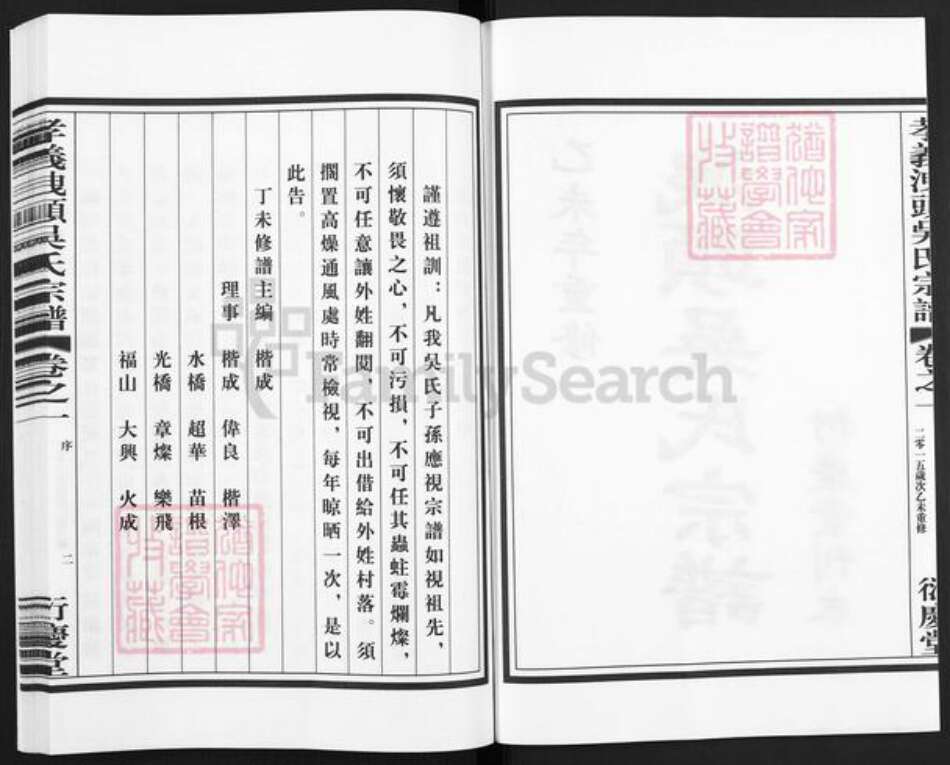 吳氏宗譜
卷之一
二零一五歲次乙未重修
衍慶堂
譜學會
收藏
謹遵祖訓：凡我吳氏子孫應視宗譜如視祖先，
須懷敬畏之心，不可污損，不可任其蟲蛀霉爛燦，
不可任意讓外姓翻閱，不可出借給外姓村落。須
擱置高燥通風處時常檢視，每年晾晒一次，是以
此告。
丁未修譜主編 楷成
理事 楷成 偉良 楷澤
水橋 超華 苗根
光橋 章燦 樂飛
福山 大興 火成
譜學會
收藏
吳氏宗譜
卷之一
序
二
衍慶堂
FamilySearch